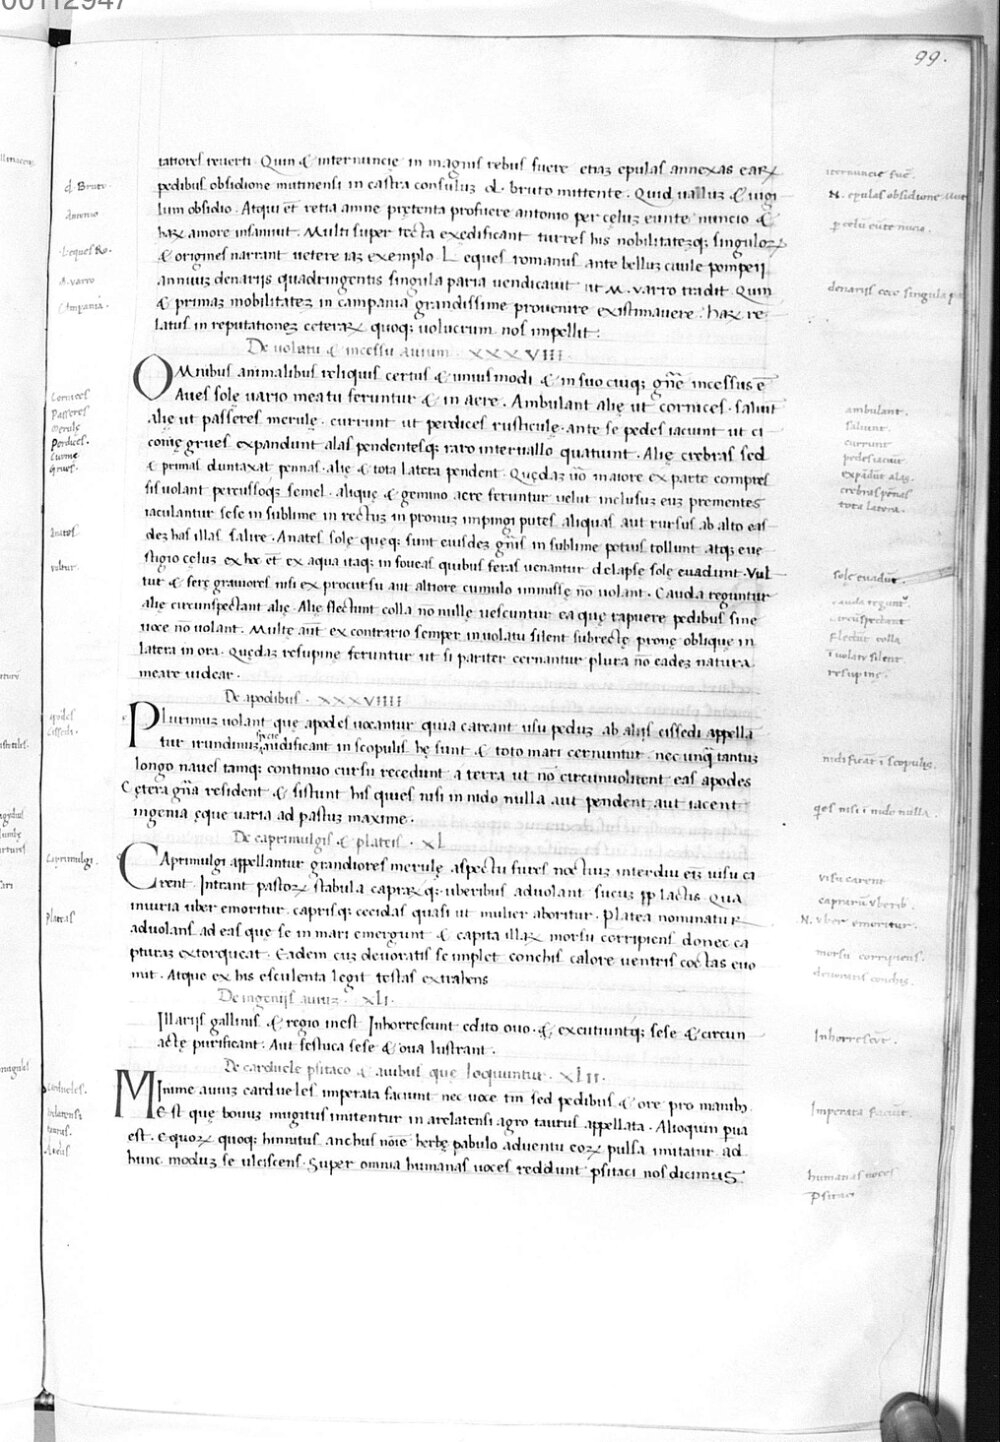 99.
tatiores reuerti. Quin & internuncię in magnis rebus fuere etiaʒ epulas annexas earꝝ
pedibus obsidione mutinensi in castra consuluʒ d. bruto mittente. Quid ualluʒ & uigi
lum obsidio. Atqui et̄ retia amne pretenta profuere antonio per cęluʒ eunte nuncio &
haꝝ amore insaniunt. Multi super tecta exędificant turres his nobilitateʒqʒ singuloꝝ
& origines narrant uetere iaʒ exemplo L eques romanus ante belluʒ ciuile pompeij
annuuʒ denarijs quadringentis singula paria uendicauit ut M. varro tradit Quin
& primaʒ mobilitateʒ in campania grandissime prouenire existimauere. haꝝ re
latus in reputationeʒ ceteraꝝ quoqʒ uolucrum nos impellit.
De uolatu & incessu auium. XXXVIII.
OMnibus animalibus reliquis certus & uniusmodi & in suo cuiqʒ gn̄e incessus ē
Aues solę uario meatu feruntur & in aere. Ambulant alię ut cornices. saliūt
alię ut passeres merulę. currunt ut perdices rusticulę. ante se pedes iacunt ut ci
conię grues expandunt alas pendentesqʒ raro interuallo quatiunt. Alię crebras sed
& primas duntaxat pennas. alię & tota latera pendent. Quędaʒ uō maiore ex parte compres
sis uolant percussoqʒ semel. aliquę & gemino aere feruntur uelut inclusuʒ euʒ prementes
iaculantur sese in sublime in rectuʒ in pronuʒ impingi putes aliquas aut rursus ab alto eas
deʒ has illas salire. Anates solę quęqʒ sunt eiusdeʒ gn̄is in sublime potius tollunt atqʒ eue
stigio cęluʒ ex hoc et̄ ex aqua itaqʒ in foueas quibus feras uenantur delapse solę euadunt. Vul
tur & ferę grauiores nisi ex procursu aut altiore cumulo immissę nō uolant. Cauda reguntur
alię circunspectant alię. Alię flectunt colla nō nullę uescuntur ea quę rapuere pedibus sine
uoce nō uolant. Multę aūt ex contrario semper in uolatu silent subrectę pronę oblique in
latera in ora. Quędaʒ resupinę feruntur ut si pariter cernantur plura nō eadeʒ natura
meare uidear.
De apodibus. XXXVIIII
PLurimuʒ uolant quę apodes uocantur quia careant usu peduʒ ab alijs cissedi appella
tur irundinuʒ specie nidificant in scopulis hę sunt & toto mari cernuntur nec unq̄ tantuʒ
longo naues tamqʒ continuo cursu recedunt a terra ut nō circunuolitent eas apodes
Cętera gn̄a resident & sistunt his quies nisi in nido nulla aut pendent aut iacent
ingenia ęque uaria ad pastuʒ maxime.
De caprimulgis & plateis. XL
CAprimulgi appellantur grandiores merulę aspectu fures nocturni interdiu eīʒ uisu ca
rent. Intrant pastoꝝ stabula capraꝝqʒ uberibus aduolant sucuʒ ꝓp lactis. Qua
iniuria uber emoritur. caprisqʒ cecidas quasi ut mulier aboritur. Platea nominatur
aduolans ad eas quę se in mari emergunt & capita illaꝝ morsu corripiens donec ca
pturaʒ extorqueat. Eadem cuʒ deuoratis se implet conchis calore uentris coctas euo
mit. Atque ex his esculenta legit testas extrahens
De ingenijs auiuʒ. XLI.
Illarijs gallinis & regio inest Inhorrescunt edito ouo. & excutiuntqʒ sese & circun
actę purificant. Aut festuca sese & oua lustrant.
De carduele psitaco & auibus que loquuntur. XLII.
MInime auiuʒ cardueles imperata faciunt nec uoce tm̄ sed pedibus & ore pro manibʒ
Est quę bouuʒ mugitus imitentur in arelatensi agro taurus appellata. Alioquin ꝑua
est. Equoꝝ quoqʒ hinnitus anchus nōie herbę pabulo aduentu eoꝝ pulsa imitatur ad
hunc moduʒ se ulciscens. Super omnia humanas uoces reddunt psitaci nos dicimus
d. Bruto.
Antonio
L eques Ro.
M. varro
Campania.
Cornices
Passeres
Merulę
Perdices.
Grues.
Anates
vultur.
apodes
cissedi.
Caprimulgi.
Plateas
cardueles.
taurus.
internuncie fuē.
N. epulas obsidione
ꝑ celū eūte nūcio.
denarijs cccc singula
ambulant.
saliunt.
currunt
pedes iaciūt.
expādūt alas.
crebras pēnas
tota latera.
sole euadūt.
cauda regunt.
circūspectant
flectūt colla
ī volatu silent
resupinę.
nidificāt ī scopulis.
qes nisi ī nido nulla.
visu carent
caprarū vberib.
N. vber emoritur.
morsu corripiens.
deuoratis conchis.
Inhorrescūt.
Imperata faciūt.
humanas uoces
Psitaci